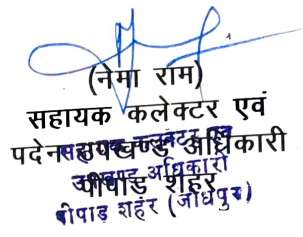 (नेमा राम)
सहायक कलेक्टर एवं
पदेन उपखण्ड अधिकारी
पीपाड़ शहर
सहायक कलेक्टर एवं
उपखण्ड अधिकारी
पीपाड़ शहर (जोधपुर)